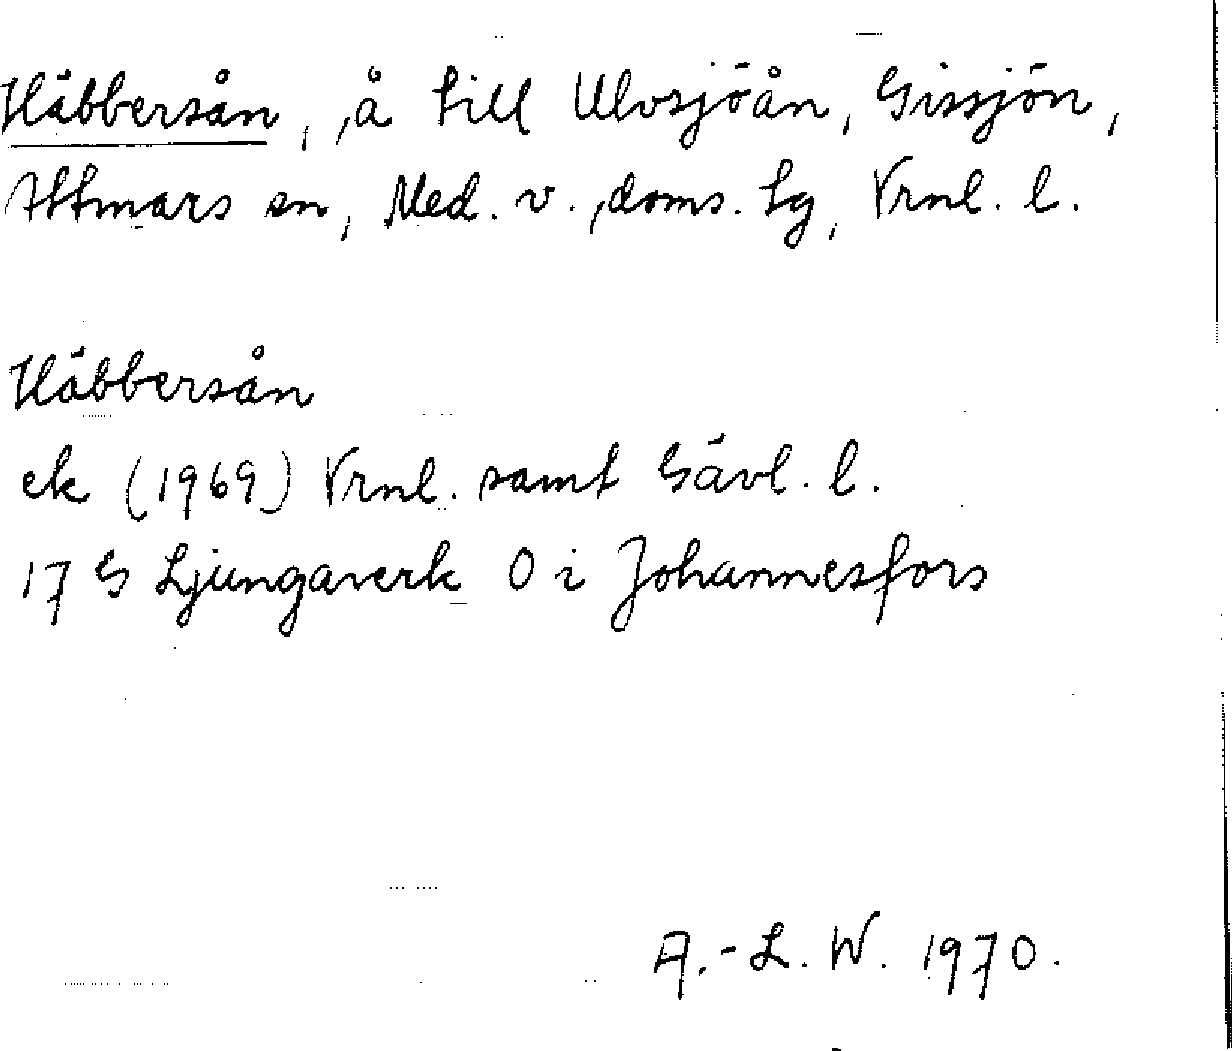 Häbbersån, å till Ulvsjöån, Gissjön,
Attmars sn, Med. v., doms. tg, Vrnl. l.
Häbbersån
ek (1969) Vrnl. samt Gävl. l.
17 G Ljungaverk 0 i Johannesfors
A.-L. W. 1970.